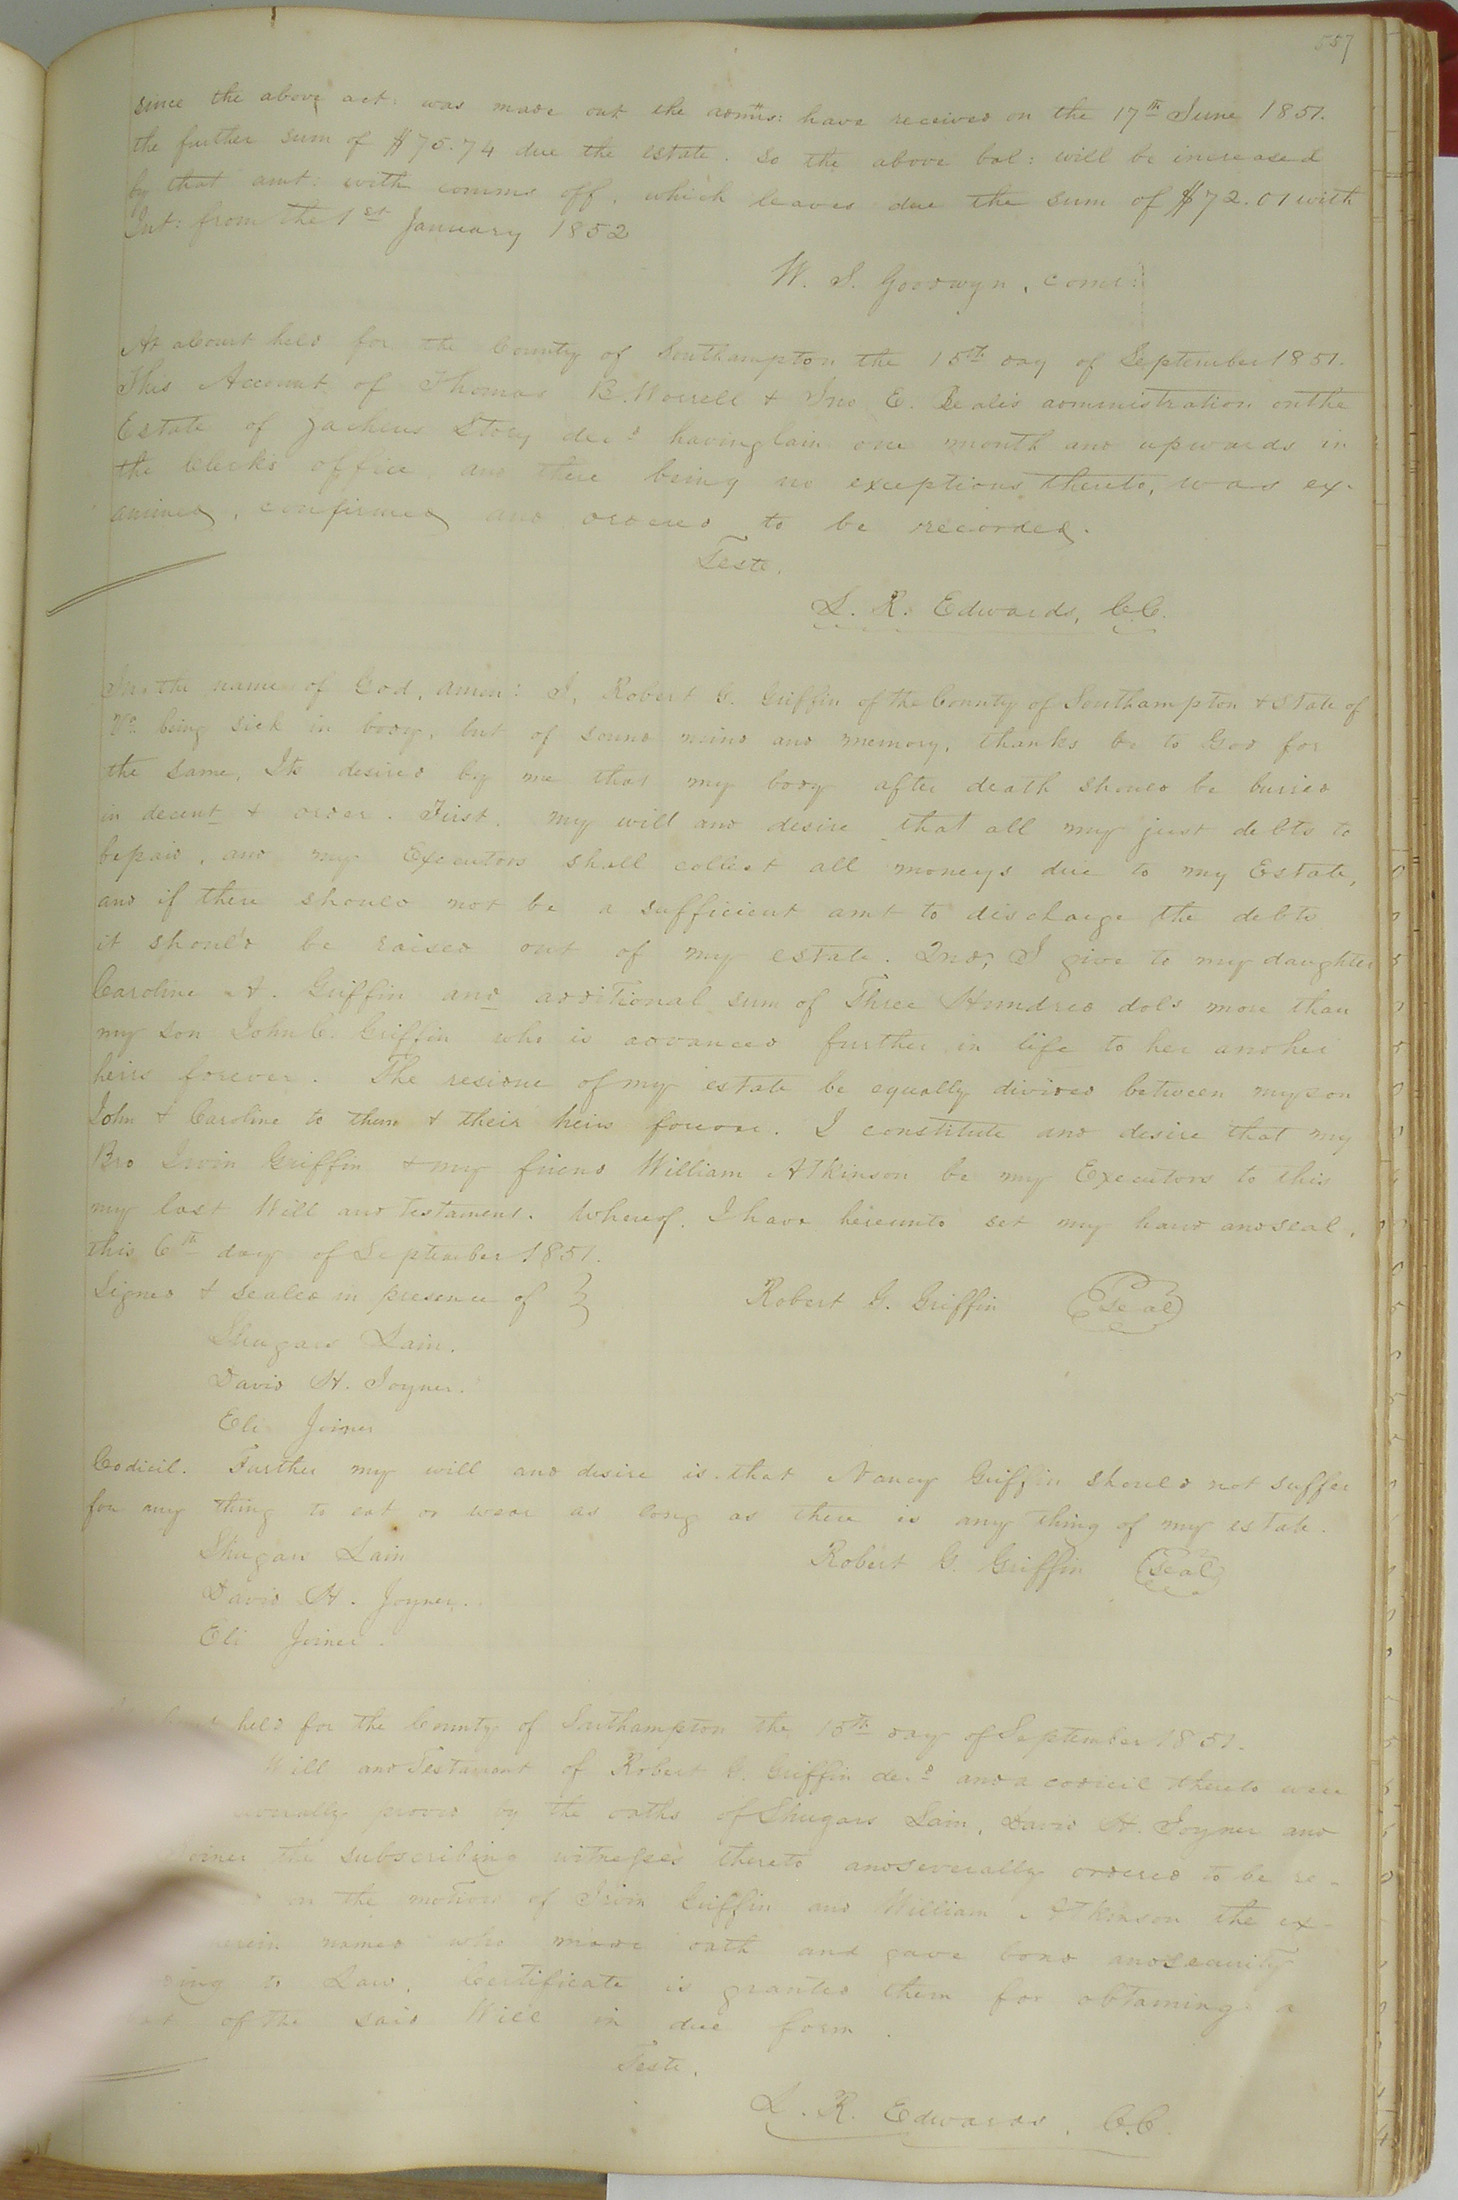 557
since the above act: was made out the admrs: have received on the 17th June 1851.
the further sum of $75.74 due the estate. So the above bal: will be increased
by that amt: with comms off, which leaves due the sum of $72.01 with
Int: from the 1st January 1852
W. S. Goodwyn, comr:
At a Court held for the County of Southampton the 15th day of September 1851.
This Account of Thomas B. Worrell & Jno E. Beal's administration on the
Estate of Zacheus Story decd having lain one month and upwards in
the Clerk's office and there being no exceptions thereto, was ex-
amined, confirmed and ordered to be recorded.
Teste.
L. R. Edwards, C.C.
In the name of God, amen: I, Robert G. Griffin of the County of Southampton & State of
Va. being sick in body, but of sound mind and memory, thanks be to God for
the same, Its desired by me that my body after death should be burried
in decent & order. First. my will and desire that all my just debts to
be paid, and my Executors shall collect all moneys due to my Estate,
and if there should not be a sufficient amt to discharge the debts
it should be raised out of my estate. 2nd; I give to my daughter
Caroline A. Griffin and additional sum of Three Hundred dols more than
my son John C. Griffin who is advanced further in life to her and her
heirs forever. The residue of my estate be equally divided between my son
John & Caroline to them & their heirs forever. I constitute and desire that my
Bro Irvin Griffin & my friend William Atkinson be my Executors to this
my last Will and Testament. Whereof, I have hereunto set my hand and seal,
this 6th day of September 1851.
Signed & sealed in presence of } Robert G. Griffin (Seal)
Shugars Lain.
David H. Joyner.
Eli Joiner
Codicil. Further my will and desire is that Nancy Griffin should not suffer
for any thing to eat or wear as long as there is any thing of my estate.
Shugars Lain Robert G. Griffin (Seal)
David H. Joyner.
Eli Joiner.
held for the County of Southampton the 15th day of September 1851.
Will and Testament of Robert G. Griffin decd and a codicil thereto were
proved by the oaths of Shugars Lain, David H. Joyner and
Joiner the subscribing witnesses thereto and severally ordered to be re-
on the motion of Irvin Griffin and William Atkinson the ex-
named who made oath and gave bond and security
to Law, Certificate is granted them for obtaining a
of the said Will in due form.
Teste.
L. R. Edwards, C.C.